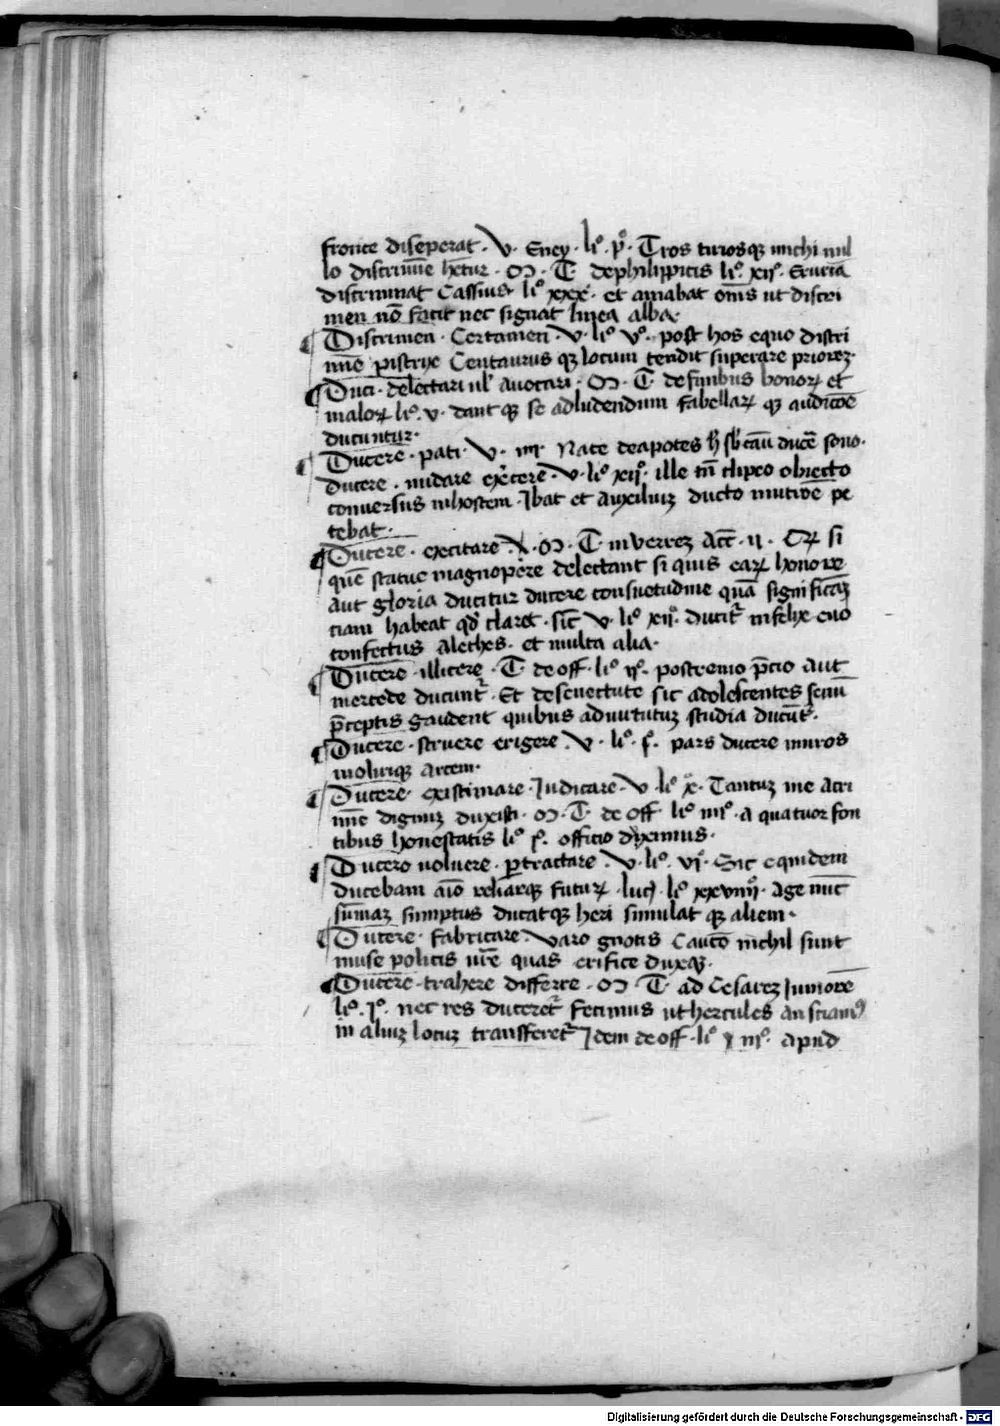 fronte diseperat · V · Eney · li.º p.º · Tros turiosqꝫ michi nul
lo discrimīe hētur · M · T · dephilippicis li.º xijº
discriminat Cassius · li.º xxx · et amabat om̄is ut discri
men nō facit nec signat linea alba ·
¶ Discrimen · Certamen · V · li.º v.º · post hos equo discri
mīe pistrix Centaurus qꝫ locum tendit superare priorez ·
¶ Duci · delectari ul' avocari · M · T · de finibus bonorꝝ et
malorꝝ li.º v · dant qꝫ se adludendum fabellarꝝ qꝫ audicōe
ducuntur ·
¶ Ducere · pati · V · iiij · Nate deapotes
ducere · nudare exercere · V · li.º xijº · ille tn̄ clipeo obiecto
conversus inhostem · Ibat et auxiliuꝫ ducto mucrōe pe
tebat ·
¶ Ducere · excitare · M · T · in verrez Acc̄ · ij · si
quē statue magnopere delectant si quis earꝝ honore
aut gloria ducitur ducere consuetudine quā significaꝫ
tiam habeat qd' claret · sic̄ V · li.º xijº · ducit᷑ infelix evo
confectus Alethes · et multa alia ·
¶ Ducere · illicere · T · de off · li.º ijº · postremo p̄cio aut
mercede ducunt᷑ · Et de senectute sic adolescentes senū
p̄ceptis gaudent quibus advirtutuꝫ studia ducūt᷑ ·
¶ Ducere · struere erigere · V · li.º jº · pars ducere muros
molirique arcem ·
¶ Ducere · existimare · Iudicare · V · li.º x · Tantuꝫ me acri
mīe dignuꝫ duxisti · M · T · de off · li.º iijº · a quatuor fon
tibus honestatis li.º pº · officio diximus ·
¶ Ducero volvere · ꝑtractare · V · li.º vjº · Sic equidem
ducebam aīo rebarqꝫ futurꝝ · li.º xxviiij · Age nūc
sūmaꝫ sumptus ducatqꝫ heri simulat qꝫ aliem ·
¶ Ducere · fabricare · varo gnotis Cauto nichil sunt
muse policis vr̄e quas erifice duxqꝫ ·
¶ Ducere · trahere differre · M · T · ad Cesarez Iuniorē
li.º jº · nec res duceret᷑ fecimus ut hercules
in aliuꝫ locuꝫ transfferet᷑ Idem de off · li.º iijº · apud
Digitalisierung gefördert durch die Deutsche Forschungsgemeinschaft - DFG